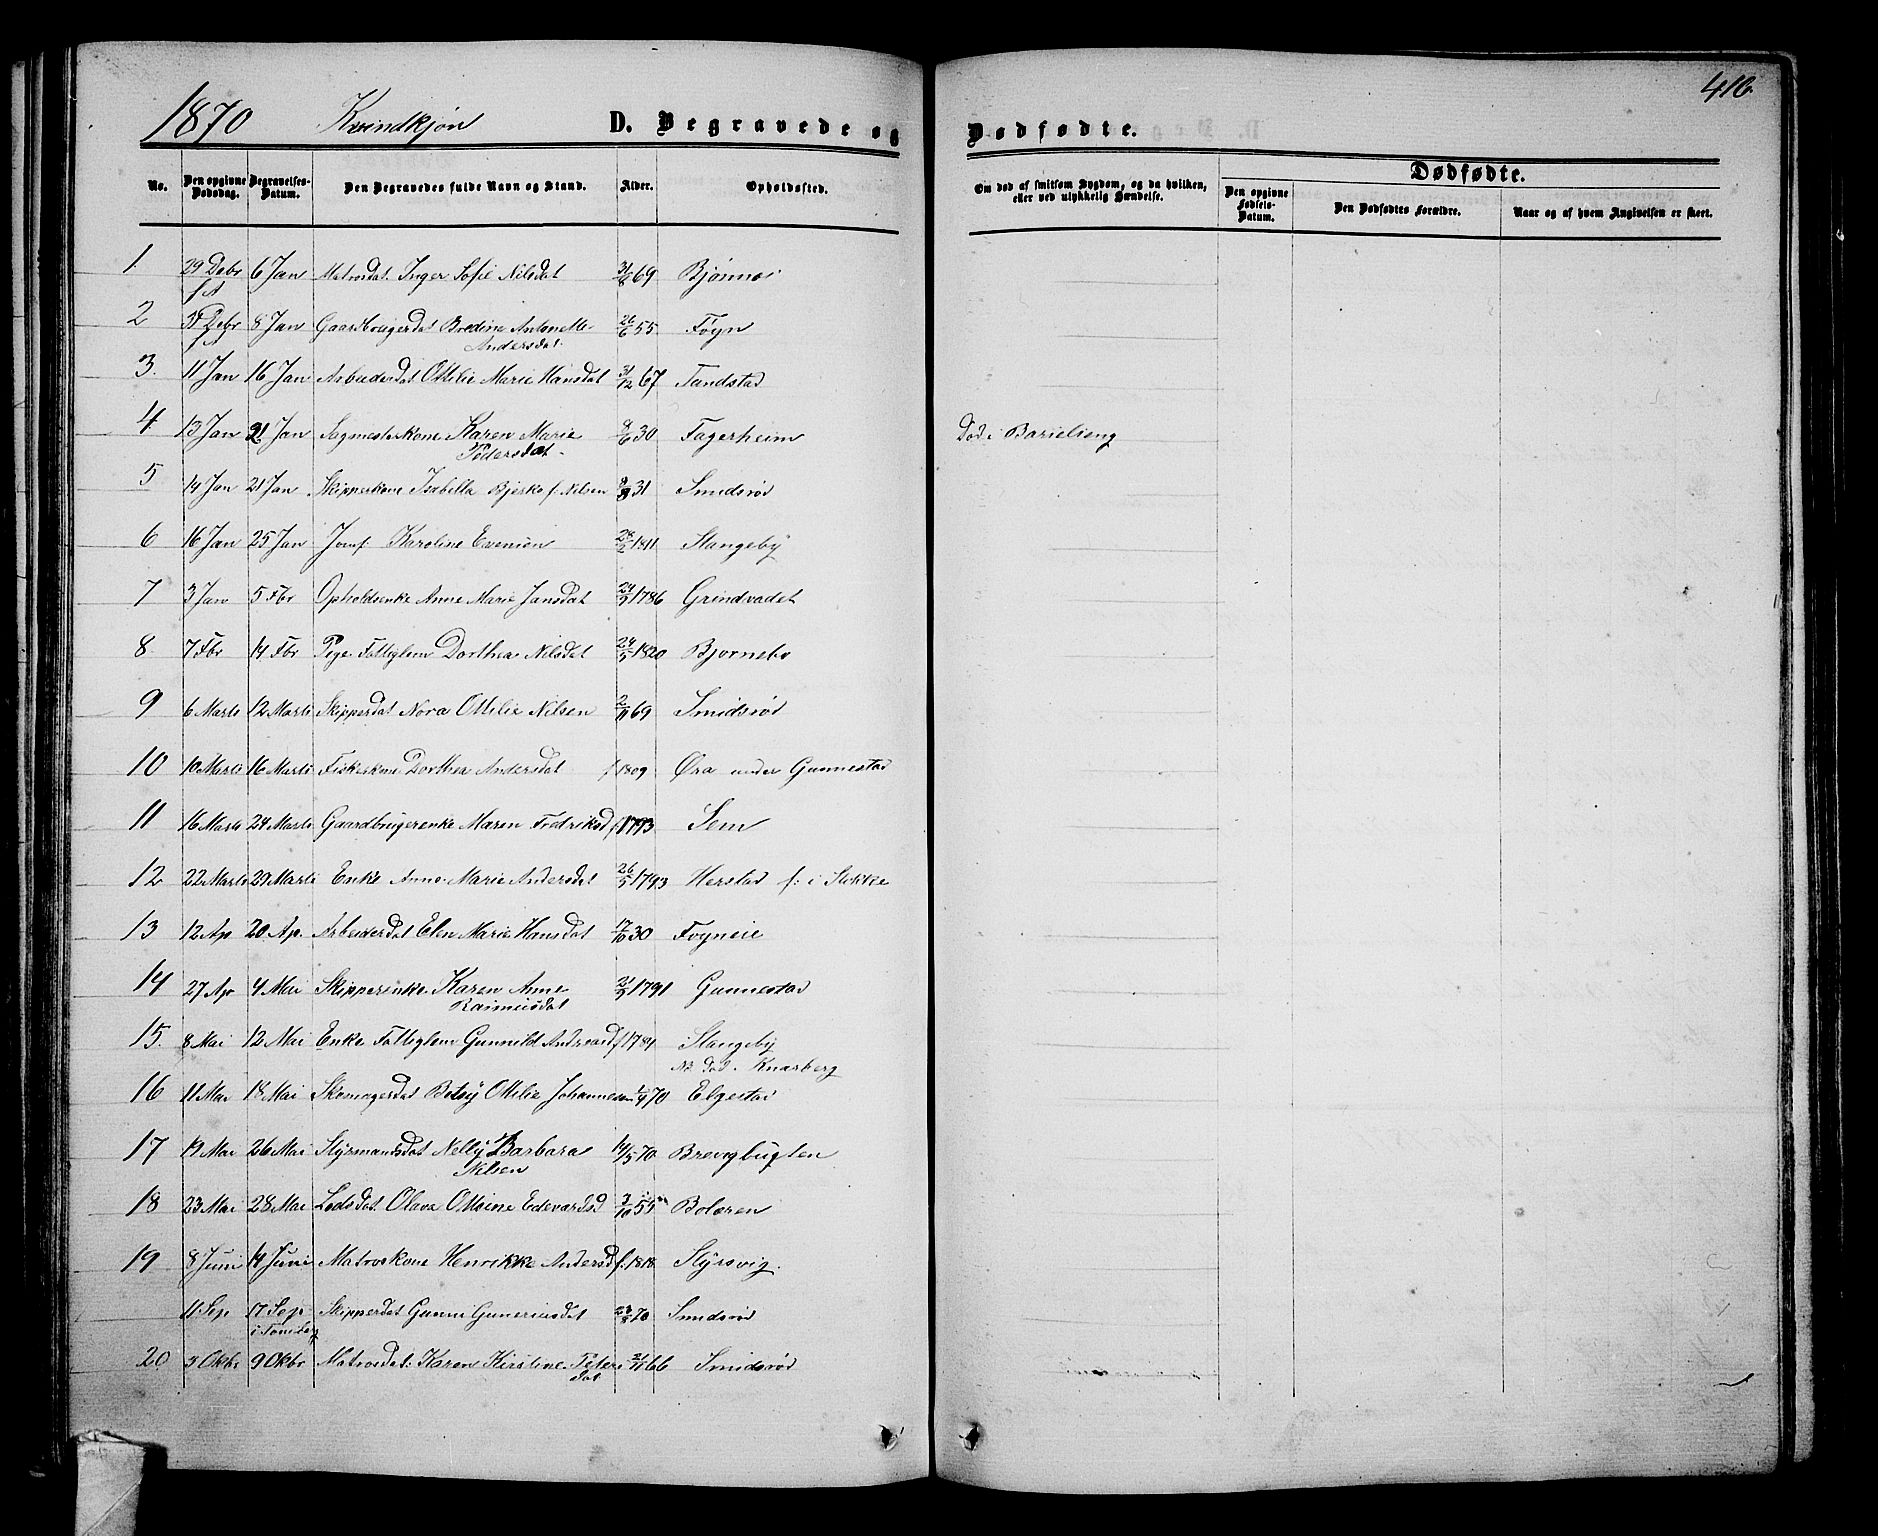 1870 Kvindkjøn D. Begravede og Dødfødte. 416
No. Den opgivne Dødsdag. Begravelses-Datum. Den Begravedes fulde Navn og Stand. Alder. Opholdssted. Om død af smitsom Sygdom, og da hvilken, eller ved ulykkelig Hændelse. Dødfødte. Den opgivne Fødsels-Datum. Den Dødfødtes Forældre. Naar og af hvem Angivelsen er skeet.
1. 29 Debr f A 6 Jan Matrosdat. Inger Sofie Nilsdat 31/8 69 Bjønnes
2 31 Debr 8 Jan Gaardbrugerdat Bredine Antonette 26/6 55 Føyn
Andersdat.
3. 11 Jan 16 Jan Arbeiderdat Ottilie Marie Hansdat 31/12 67 Tandstad
4. 13 Jan 21 Jan Sagmesterkone Karen Marie 9/6 30 Fagerheim Død i Barselseng
Pedersdat
5 14 Jan 21 Jan Skipperkone Isabella Bjerko f. Nilsen 31 Smidsrød
6 16 Jan 25 Jan Jomf Karoline Evensen 28/2 1811 Stangeby
7 3 Jan 5 Fbr Opholdsenke Anne Marie Jansdat 24/9 1786 Grindvadet
8. 7 Fbr 14 Fbr Pige Fattiglem Dorthea Nilsdat 24/5 1820 Bjørnebo
9 6 Marts 12 Marts Skipperdat Nora Ottilie Nilsen 2/11 69 Smidsrød
10 10 Marts 16 Marts Fiskerkone Dorthea Andersdat f 1809 Øra under Gunnestad
11 16 Marts 24 Marts Gaardbrugerenke Maren Fredriksd f 1793 Sem
12 22 Marts 29 Marts Enke Anne Marie Andersdat 26/5 1793 Herstad f: i Stokke
13 12 Ap 20 Ap. Arbeiderdat Elen Marie Hansdat 17/10 30 Føyneie
14 27 Ap 4 Mai Skipperenke Karen Anne 21/9 1791 Gunnestad
Rasmusdat
15. 8 Mai 12 Mai Enke Fattiglem Gunnild Andreasd f 1784 Stangeby
død i Knarberg
16 11 Mai 18 Mai Skomagerdat Betsy Ottilie Johannesen 70 Elgestad
17 19 Mai 26 Mai Styrmandsdat Nelly Barbara 14/5 70 Brevigbugten
Nilsen
18 23 Mai 28 Mai Lodsdat. Olava Ottoine Edevardsd 3/10 55 Bolæren
19 8 Juni 14 Juni Matroskone Henrikke Andersd f. 1818 Styrsvig.
11 Sep 17 Sep Skipperdat Gunni Gunerinsdat 23/8 70 Smidsrød
i Tønsberg
20 5 Oktbr 9 Oktbr Matrosdat. Karen Kirstine Peters 2/11 66 Smidsrød
dat